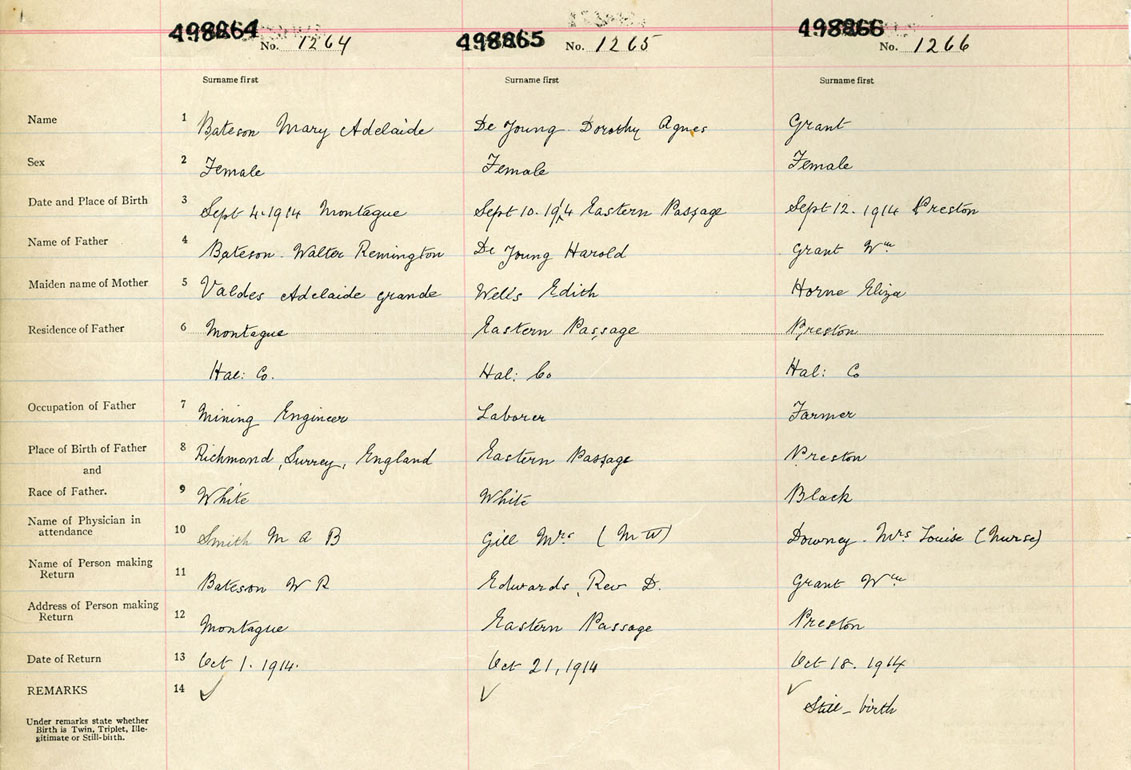 498864 No. 1264 498865 No. 1265 498866 No. 1266
Surname first Surname first Surname first
Name 1 Bateson Mary Adelaide De Young Dorothy Agnes Grant
Sex 2 Female Female Female
Date and Place of Birth 3 Sept 4.1914 Montague Sept 10.1914 Eastern Passage Sept 12.1914 Preston
Name of Father 4 Bateson Walter Remington De Young Harold Grant Wm
Maiden name of Mother 5 Valdes Adelaide grande Wells Edith Horne Eliza
Residence of Father 6 Montague Eastern Passage Preston
Hal: Co. Hal: Co Hal: Co
Occupation of Father 7 Mining Engineer Laborer Farmer
Place of Birth of Father 8 Richmond, Surrey, England Eastern Passage Preston
and
Race of Father. 9 White White Black
Name of Physician in
attendance 10 Smith M A B Gill Mrs (M W) Downey. Mrs Louise (Nurse)
Name of Person making
Return 11 Bateson W R Edwards, Rev D. Grant Wm
Address of Person making
Return 12 Montague Eastern Passage Preston
Date of Return 13 Oct 1. 1914. Oct 21, 1914 Oct 18. 1914
REMARKS 14 ✓ ✓ ✓ Still-birth
Under remarks state whether
Birth is Twin, Triplet, Ille-
gitimate or Still-birth.